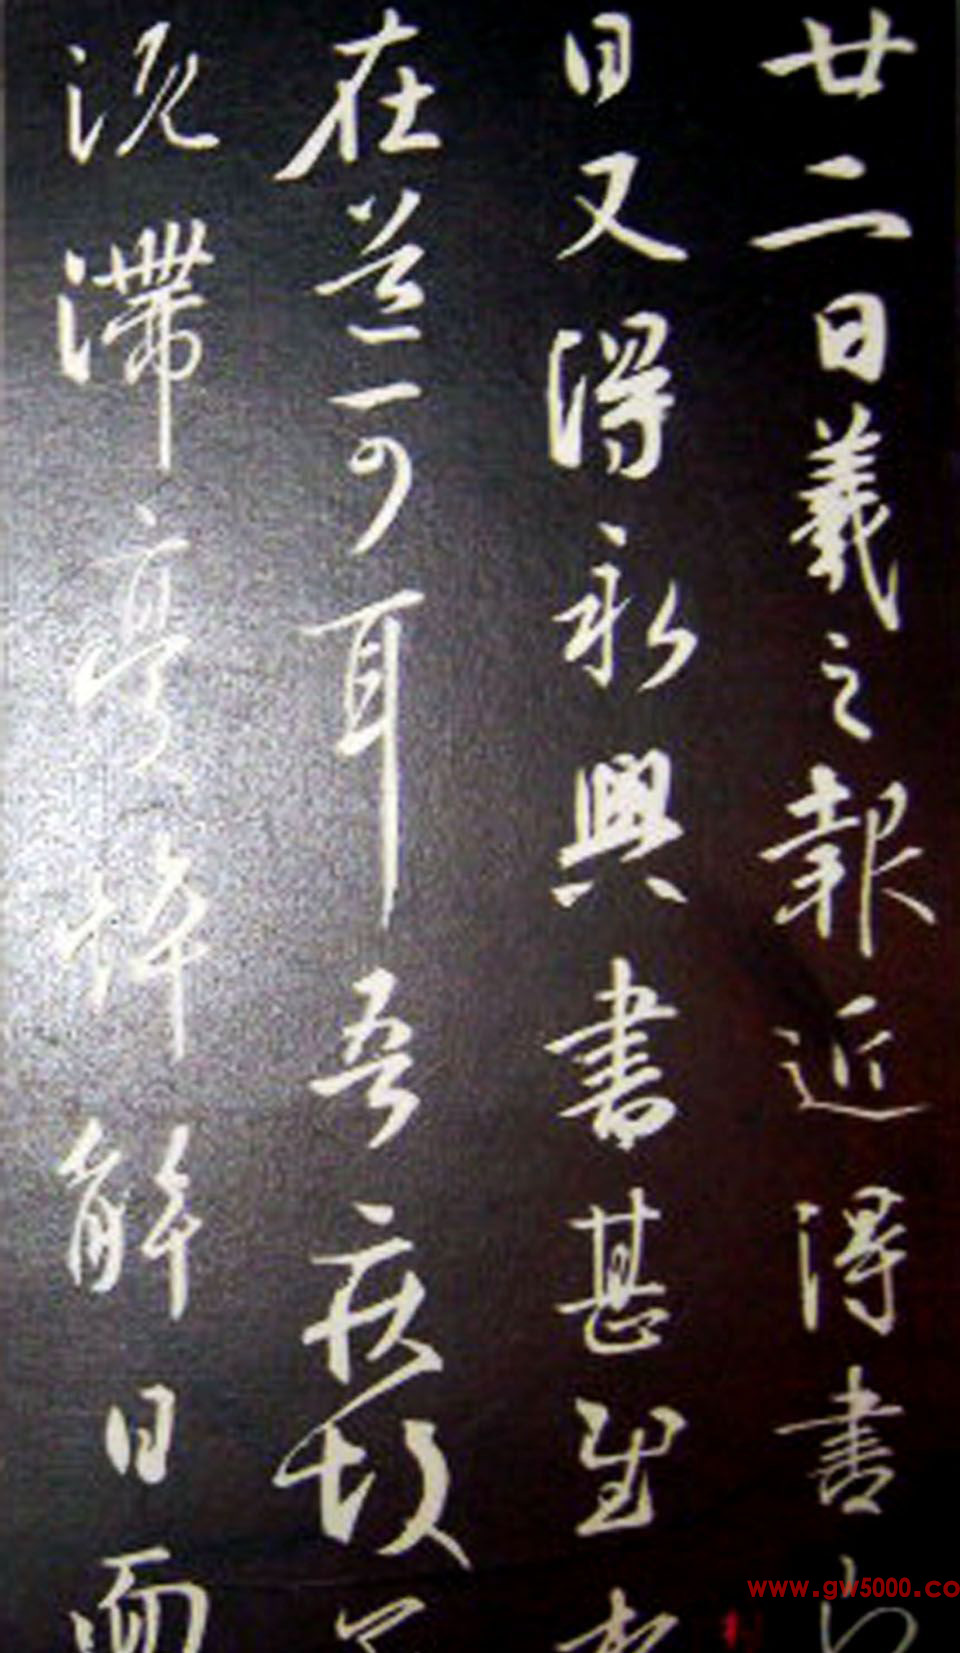 廿二日羲之報近得書
日又得永興書甚慰
在道可耳吾疾故
沉滯
解日面
www.gw5000.co